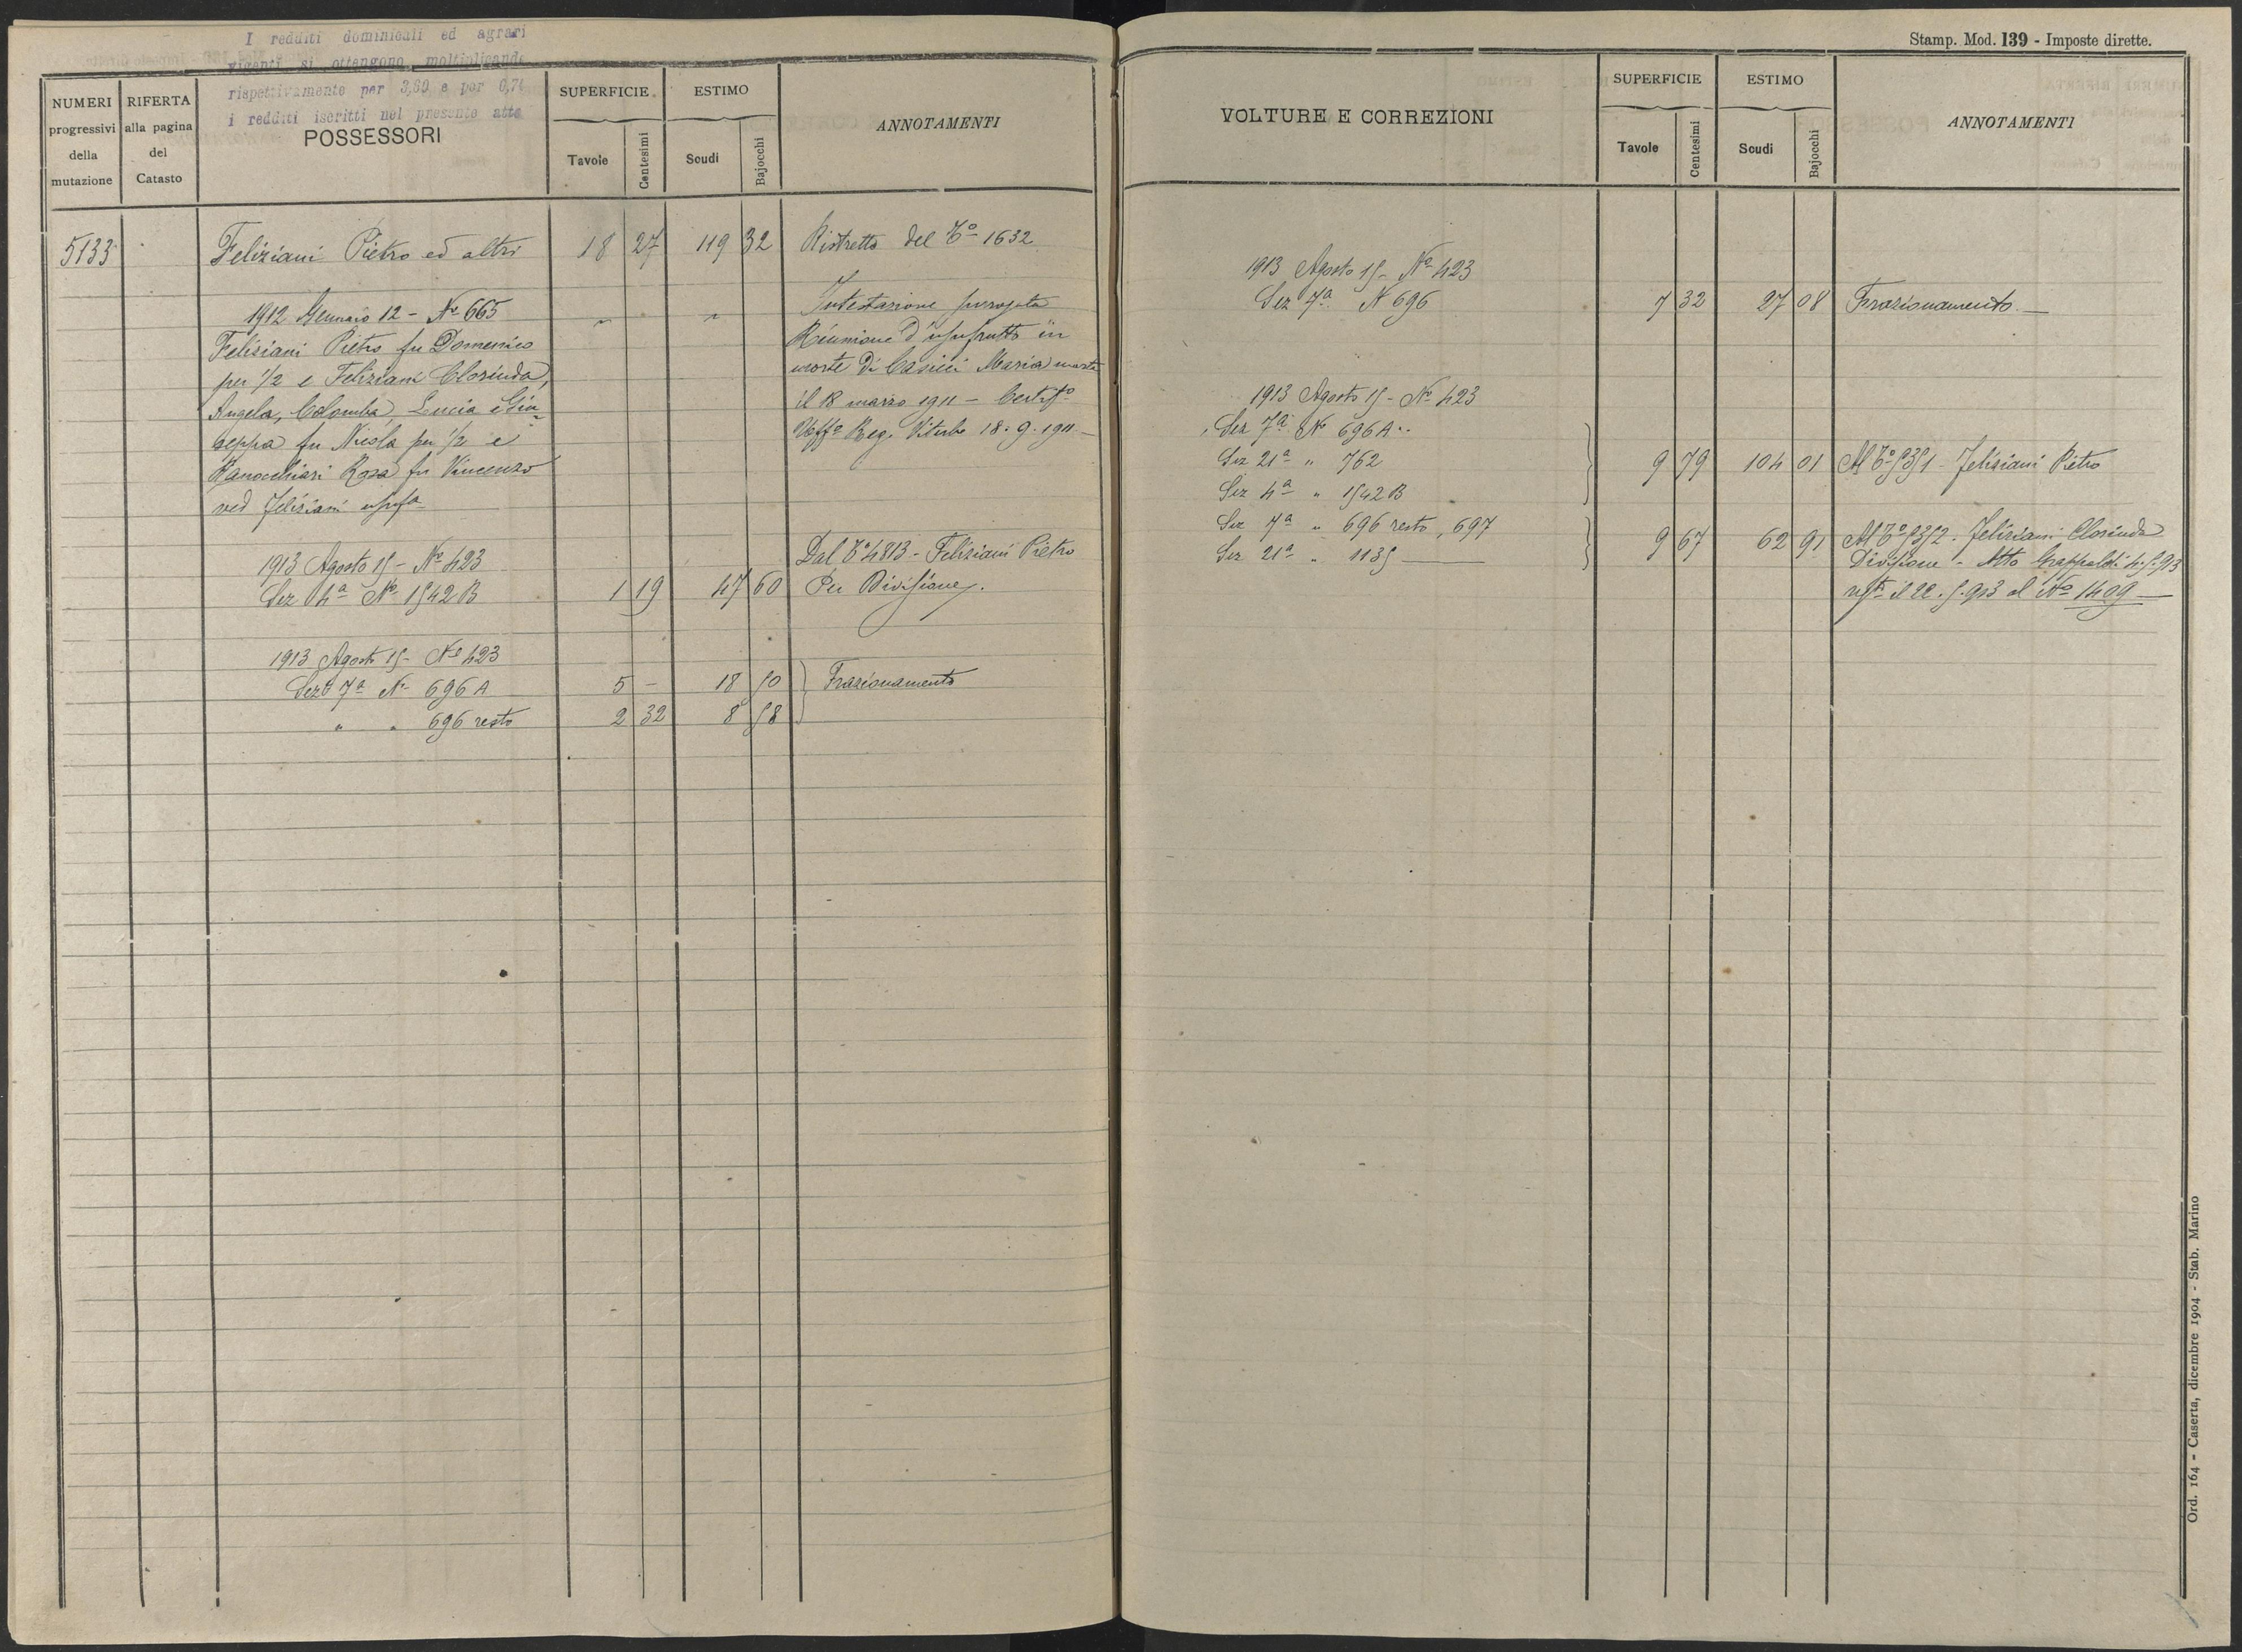 I redditi dominicali ed agrari
vigenti si ottengono moltiplicando
rispettivamente per 3,60 e per 0,70
i redditi iscritti nel presente atto
NUMERI progressivi della mutazione
RIFERTA alla pagina del Catasto
POSSESSORI
SUPERFICIE
Tavole
Centesimi
ESTIMO
Scudi
Bajocchi
ANNOTAMENTI
5133 Feliziani Pietro ed altri 18 27 119 32 Ristretto del T° 1632
1912 Gennaio 12 - N° 665 Intestazione
Feliziani Pietro fu Domenico Riunione d'usufrutto in
per 1/2 e Feliziani Clorinda, morte di Maria morta
Angela, Colomba, Lucia e Giu- il 18 marzo 1911 - Certif°
seppa fu Nicola per 1/2 e Uff° Reg. Viterbo 18.9.1911 -
Ranocchiari Rosa fu Vincenzo
ved Feliziani usufa
1913 Agosto 15 - N° 423 Dal T° 4813 - Feliziani Pietro
Sez 4a N° 1542 B 1 19 47 60 Per Divisione.
1913 Agosto 15 - N° 423
Sez 7a N° 696 A 5 - 18 50 Frazionamento
" " 696 resto 2 32 8 58
Stamp. Mod. 139 - Imposte dirette.
VOLTURE E CORREZIONI
SUPERFICIE
Tavole
Centesimi
ESTIMO
Scudi
Bajocchi
ANNOTAMENTI
1913 Agosto 15 - N° 423
Sez 7a N 696 7 32 27 08 Frazionamento -
1913 Agosto 15 - N° 423
Sez 7a N° 696 A
Sez 21a " 762 9 79 104 01 Al T° 5351 - Feliziani Pietro
Sez 4a " 1542 B
Sez 7a " 696 resto, 697 9 67 62 91 Al T° 5352 - Feliziani Clorinda
Sez 21a " 1135 Divisione - Atto 4.5.913
regto il 22.5.913 al N° 1409
Ord. 164 - Caserta, dicembre 1904 - Stab. Marino